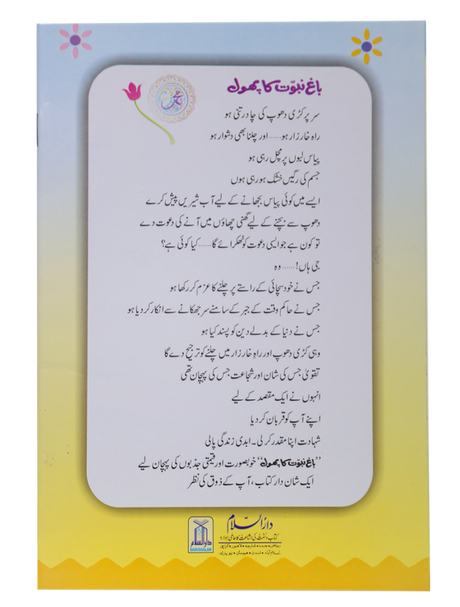 باغِ نبوّت کا پھول
سر پر کڑی دھوپ کی چادر تنی ہو
راہِ خارزار ہو...... اور چلنا بھی دشوار ہو
پیاس لبوں پر مچل رہی ہو
جسم کی رگیں خشک ہو رہی ہوں
ایسے میں کوئی پیاس بجھانے کے لیے آبِ شیریں پیش کرے
دھوپ سے بچنے کے لیے گھنی چھاؤں میں آنے کی دعوت دے
تو کون ہے جو ایسی دعوت کو ٹھکرائے گا...... کیا کوئی ہے؟
جی ہاں!...... وہ
جس نے خود سچائی کے راستے پر چلنے کا عزم کر رکھا ہو
جس نے حاکمِ وقت کے جبر کے سامنے سر جھکانے سے انکار کر دیا ہو
جس نے دنیا کے بدلے دین کو پسند کیا ہو
وہی کڑی دھوپ اور راہِ خارزار میں چلنے کو ترجیح دے گا
تقویٰ جس کی شان اور شجاعت جس کی پہچان تھی
انہوں نے ایک مقصد کے لیے
اپنے آپ کو قربان کر دیا
شہادت اپنا مقدر کر لی۔ ابدی زندگی پالی
"باغِ نبوّت کا پھول" خوبصورت اور قیمتی جذبوں کی پہچان لیے
ایک شان دار کتاب، آپ کے ذوق کی نظر
دارُالسّلام
کتاب و سنت کی اشاعت کا عالمی ادارہ
دارالسلام
DARUSSALAM